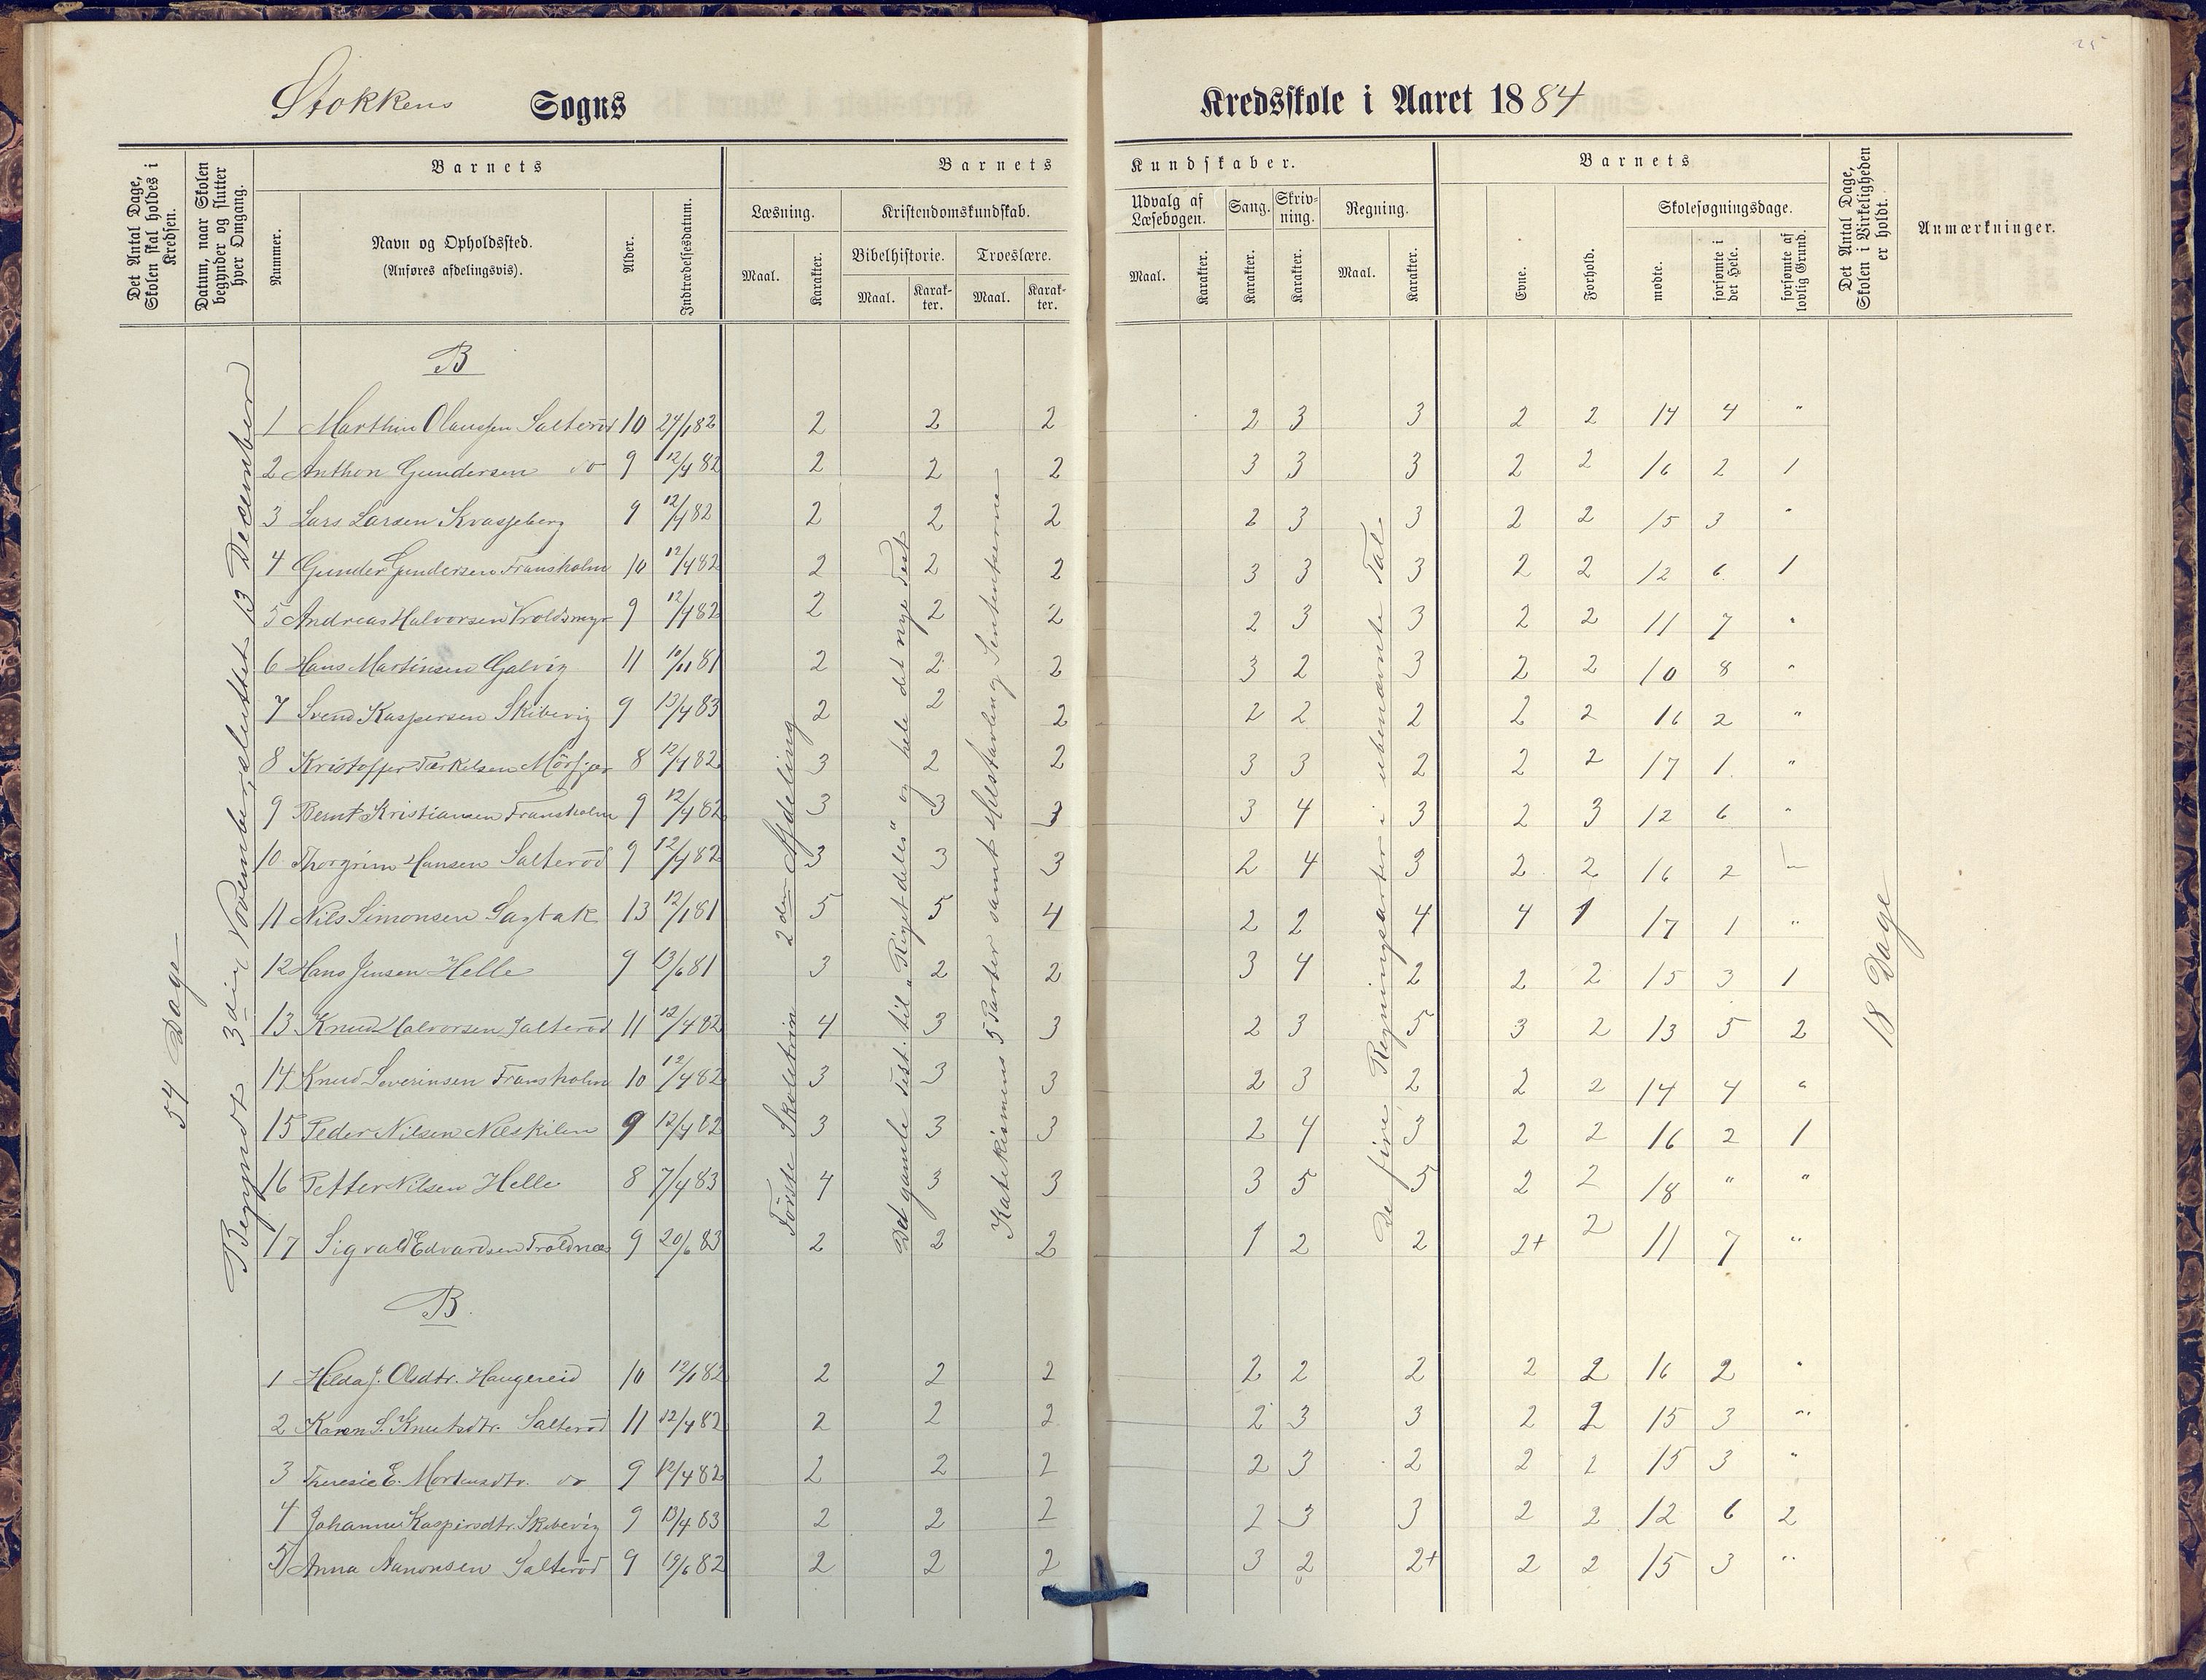 25
Stokkens Sogns Kredsskole i Aaret 1884
Det Antal Dage, Skolen skal holdes i Kredsen.
Datum, naar Skolen begynder og slutter hver Omgang.
Barnets
Nummer.
Navn og Opholdssted.
(Anføres afdelingsvis).
Alder.
Indtrædelsesdatum.
Barnets Kundskaber.
Læsning.
Maal. Karakter.
Kristendomskundskab.
Bibelhistorie. Troeslære.
Maal. Karakter. Maal. Karakter.
Udvalg af Læsebogen.
Maal. Karakter.
Sang. Karakter.
Skrivning. Karakter.
Regning.
Maal. Karakter.
Barnets
Evne. Forhold.
Skolesøgningsdage.
mødte. forsømte i det Hele. forsømte af lovlig Grund.
Det Antal Dage, Skolen i Virkeligheden er holdt.
Anmærkninger.
54 Dage
Begyndt 3die November, sluttet 13 December
Første Skoletrin 2den Afdeling
Det gamle Test. til "Riget deles" og hele det nye Test
Katekismens 5 Parter samt Hustavlen og Sententserne
De fire Regningsarter i ubenævnte Tal
18 Dage
B
1 Marthin Olaussen Salterød 10 24/1 82 2 2 2 2 3 3 2 2 14 4 "
2 Anthon Gundersen do 9 12/4 82 2 2 2 3 3 3 2 2 16 2 1
3 Lars Larsen Kvasjeberg 9 12/4 82 2 2 2 2 3 3 2 2 15 3 "
4 Gunder Gundersen Fransholm 10 12/4 82 2 2 2 3 3 3 2 2 12 6 1
5 Andreas Halvorsen Voldsmyr 9 12/4 82 2 2 2 2 3 3 2 2 11 7 "
6 Hans Martinsen Galvig 11 10/11 81 2 2 2 3 2 3 2 2 10 8 "
7 Svend Kaspersen Skibevig 9 13/4 83 2 2 2 2 2 2 2 2 16 2 "
8 Kristoffer Terkelsen Mörfjær 8 12/4 82 3 2 2 3 3 2 2 2 17 1 "
9 Bernt Kristiansen Fransholm 9 12/4 82 3 3 3 3 4 3 2 3 12 6 "
10 Thorgrim Hansen Salterød 9 12/4 82 3 3 3 2 4 3 2 2 16 2
11 Nils Simonsen Sagbak 13 12/1 81 5 5 4 2 2 4 4 1 17 1 "
12 Hans Jensen Helle 9 13/6 81 3 2 2 3 4 2 2 2 15 3 1
13 Knud Halvorsen Salterød 11 12/4 82 4 3 3 2 3 5 3 2 13 5 2
14 Knud Severinsen Fransholm 10 12/4 82 3 3 3 2 3 2 2 2 14 4 "
15 Peder Nilsen Næskilen 9 12/4 82 3 3 3 2 4 3 2 2 16 2 1
16 Petter Nilsen Helle 8 7/4 83 4 3 3 3 5 5 2 2 18 " "
17 Sigvald Edvardsen Troldnæs 9 20/6 83 2 2 2 1 2 2 2+ 2 11 7 "
B.
1 Hilda J. Olsdtr. Haugereid 10 12/1 82 2 2 2 2 2 2 2 2 16 2 "
2 Karen S. Knutsdtr. Salterød 11 12/4 82 2 2 2 2 3 3 2 2 15 3 "
3 Theresie E. Mortensdtr. do 9 12/4 82 2 2 2 2 3 2 2 2 15 3 "
4 Johanne Kaspersdtr. Skibevig 9 13/4 83 2 2 2 2 3 3 2 2 12 6 2
5 Anna Aanonsen Salterød 9 19/6 82 2 2 2 3 2 2+ 2 2 15 3 "